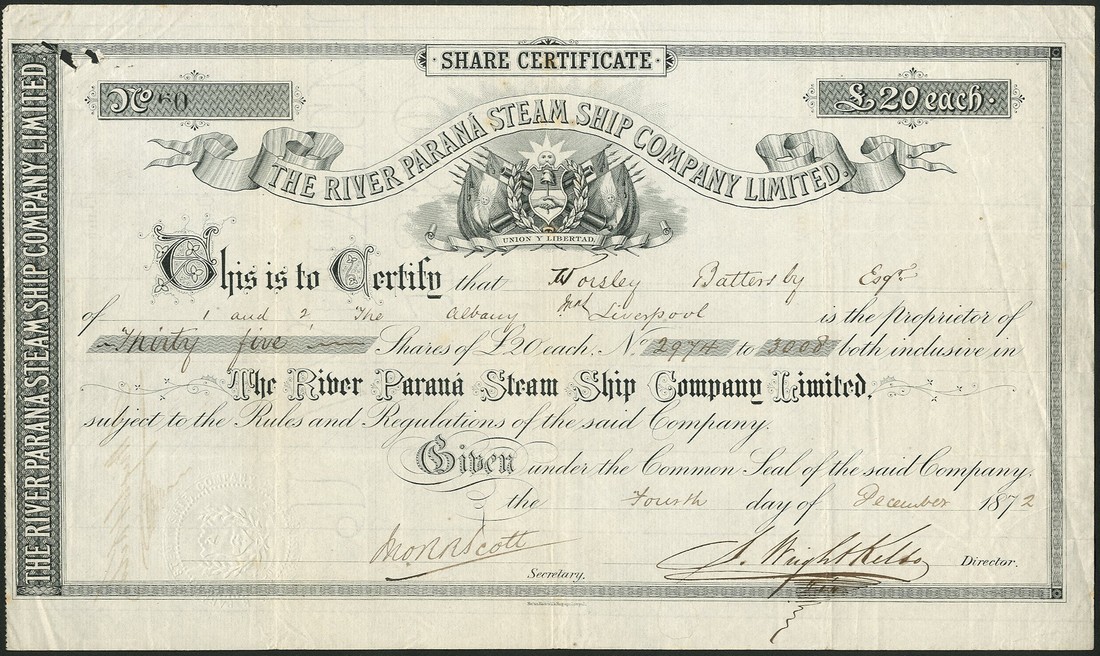 SHARE CERTIFICATE
No 60
£20 each.
THE RIVER PARANÁ STEAM SHIP COMPANY LIMITED.
UNION Y LIBERTAD.
This is to Certify that Worsley Battersby Esqr.
of 1 and 2 The Albany Liverpool is the proprietor of
Thirty five Shares of £20 each, No 2974 to 3008 both inclusive in
The River Paraná Steam Ship Company Limited,
subject to the Rules and Regulations of the said Company.
Given under the Common Seal of the said Company.
the Fourth day of December 1872
Scott
J. Wright Kelso
Secretary.
Director.
THE RIVER PARANA STEAM SHIP COMPANY LIMITED